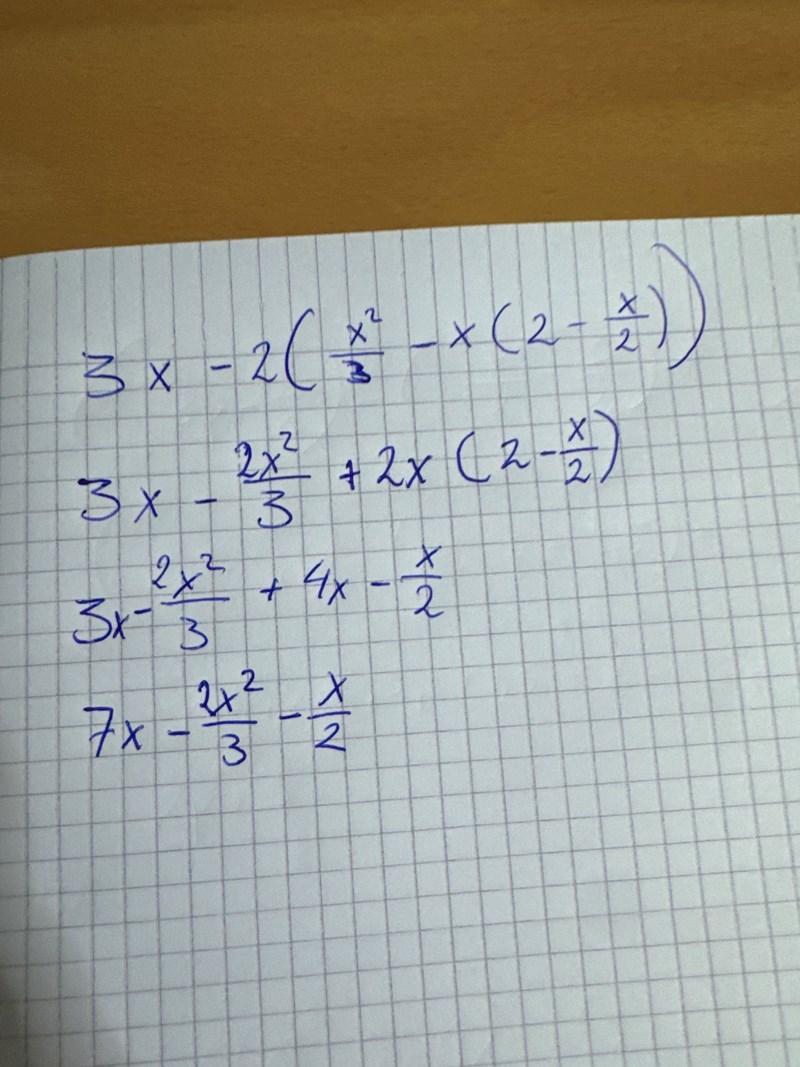 3x - 2(x²/3 - x(2 - x/2))
3x - 2x²/3 + 2x(2 - x/2)
3x - 2x²/3 + 4x - x/2
7x - 2x²/3 - x/2